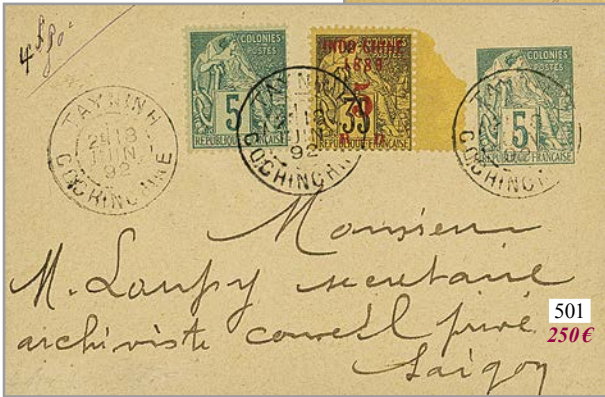 COLONIES
POSTES
5
REPUBLIQUE FRANCAISE
INDO-CHINE
1889
5
35
REPUBLIQUE FRANÇAISE
COLONIES
POSTES
5
REPUBLIQUE FRANCAISE
TAYNINH
18
JUIN
92
COCHINCHINE
TAYNINH
18
JUIN
92
COCHINCHINE
TAYNINH
COCHINCHINE
Monsieur
M. Loupy secretaire
archiviste conseil privé
Saigon
501
250€